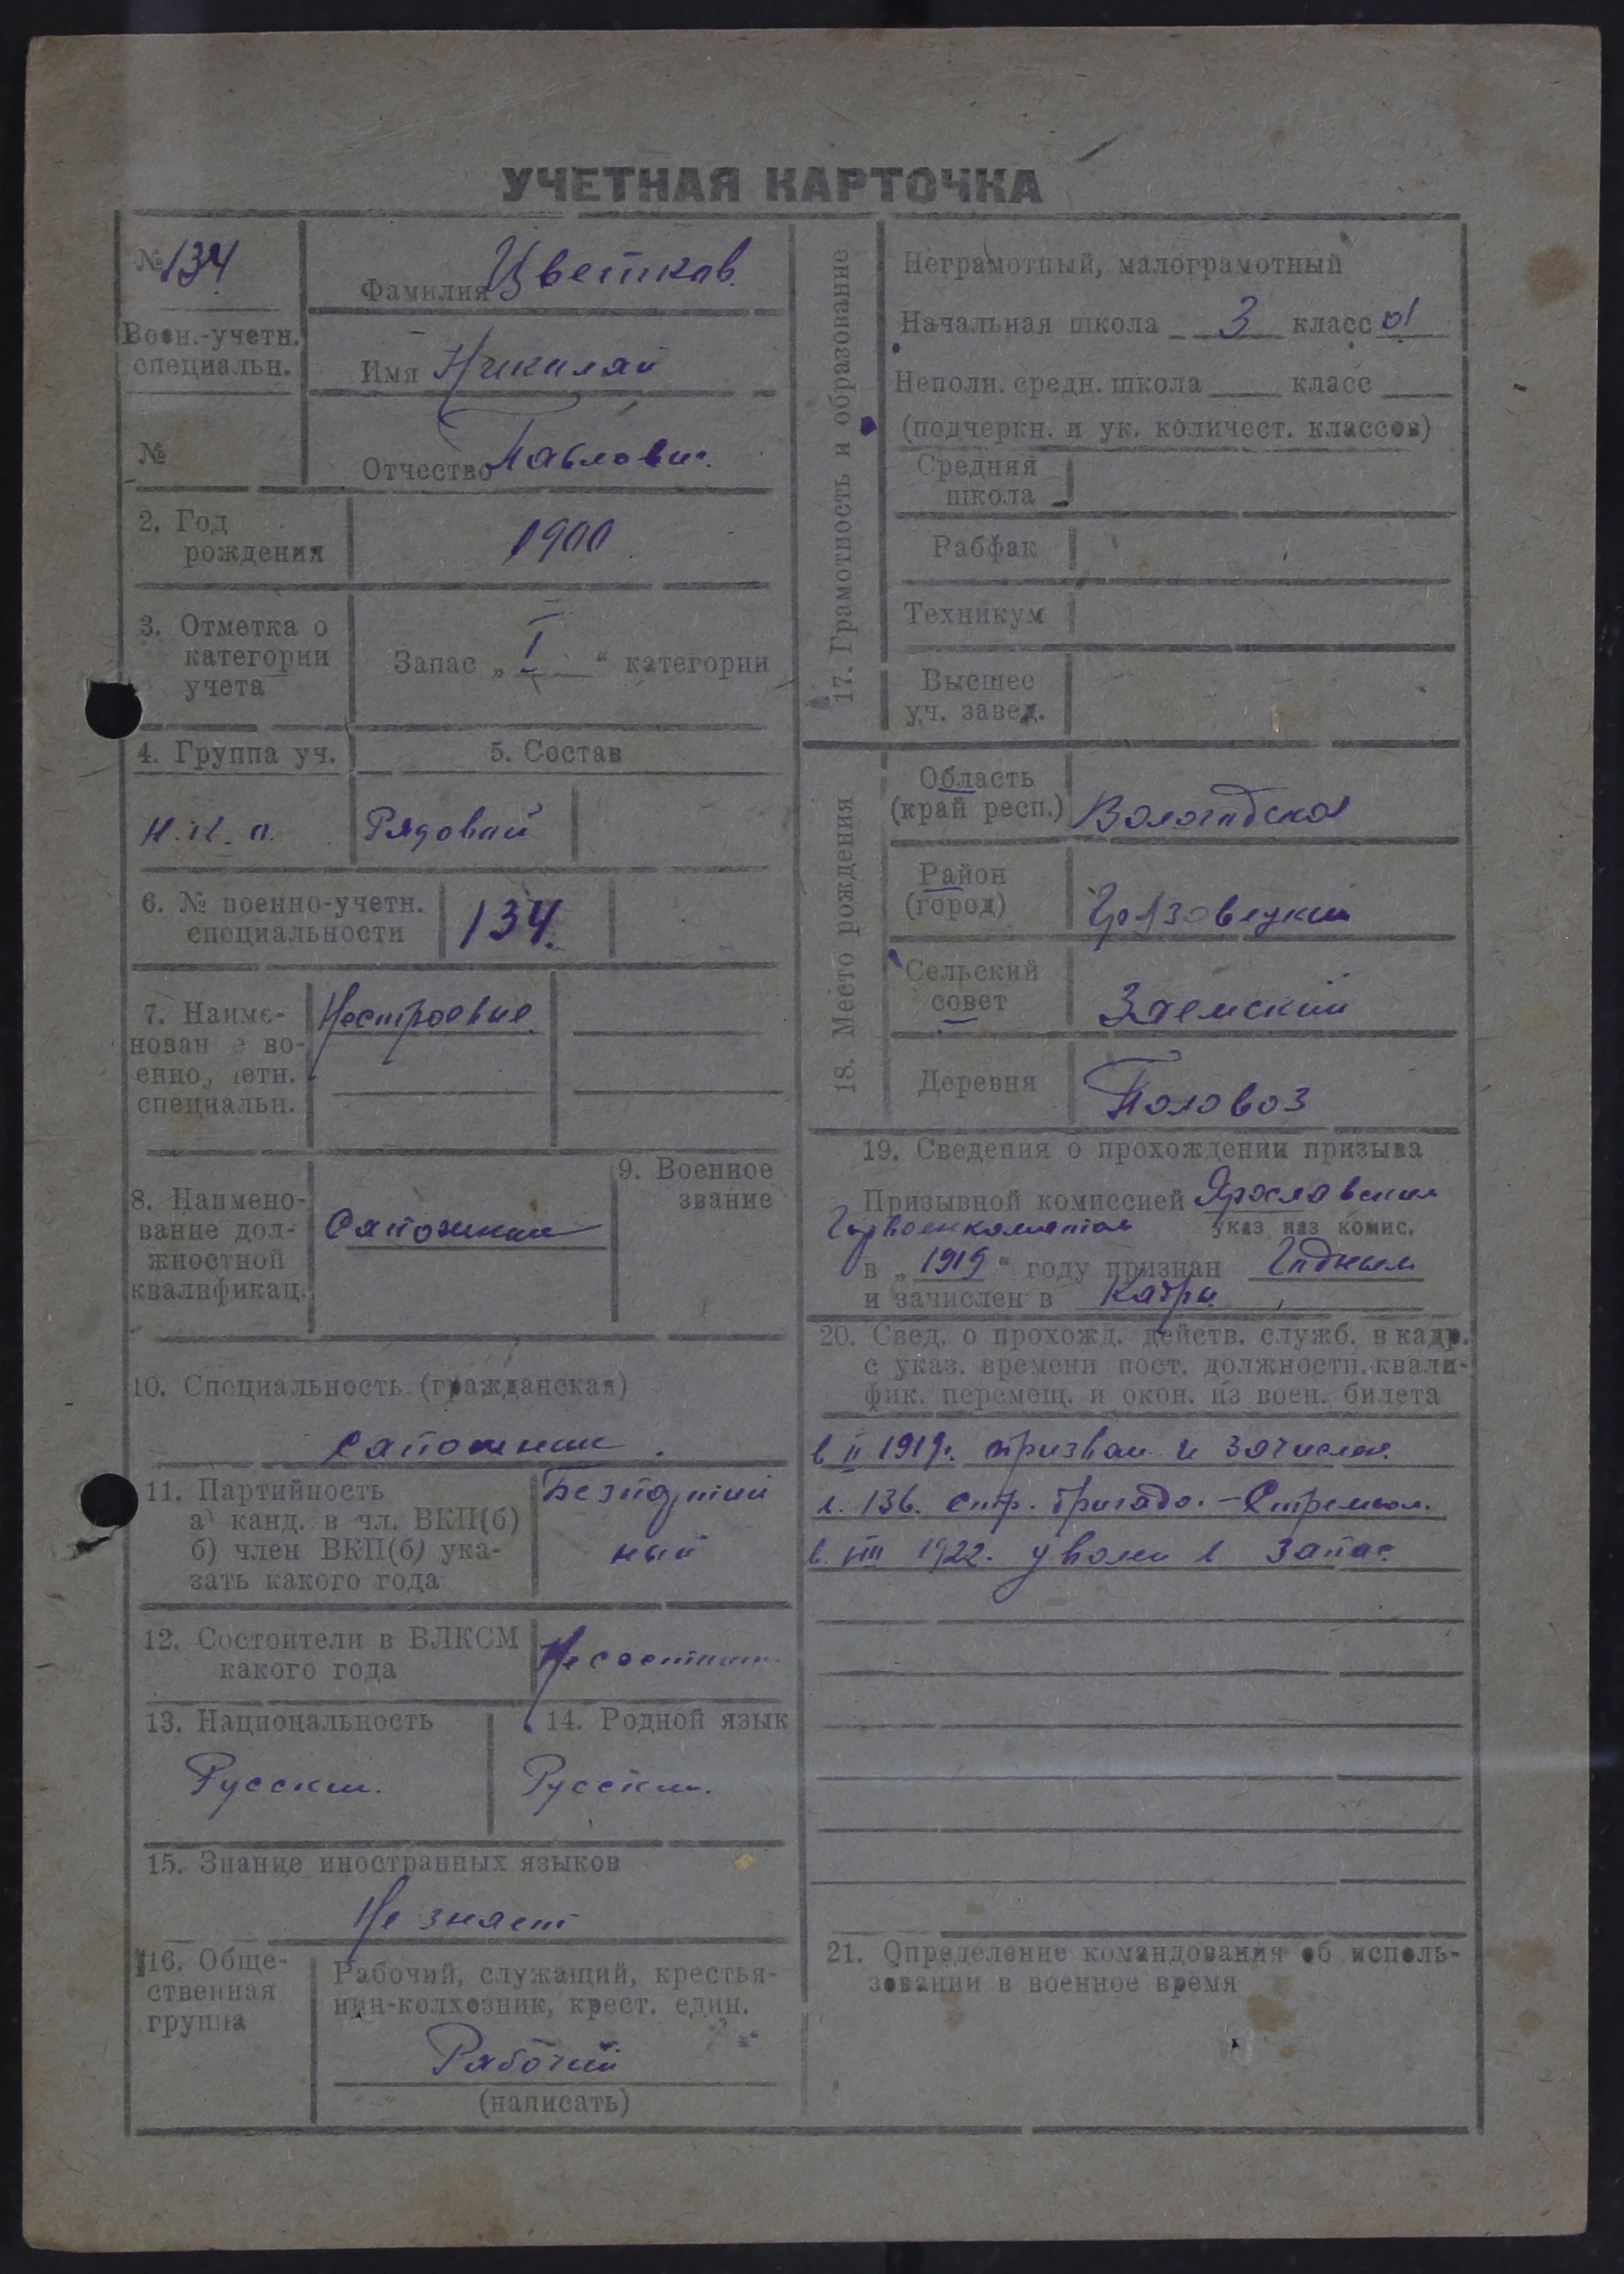 УЧЕТНАЯ КАРТОЧКА
№ 134
Воен.-учетн.
специальн.
№
Фамилия Цветков.
Имя Николай
Отчество Павлович.
2. Год
рождения
1900
3. Отметка о
категории
учета
Запас „ I “ категории
4. Группа уч.
5. Состав
Рядовой
6. № военно-учетн.
специальности
134.
7. Наиме-
нован е во-
енно, четн.
специальн.
Нестроевые
8. Наимено-
вание дол-
жностной
квалификац.
Сапожник
9. Военное
звание
10. Специальность (гражданская)
сапожник.
11. Партийность
а) канд. в чл. ВКП(б)
б) член ВКП(б) ука-
зать какого года
Безпартий
ный
12. Состоит ли в ВЛКСМ
какого года
Не состоит
13. Национальность
Русский.
14. Родной язык
Русский.
15. Знание иностранных языков
Не знает
16. Обще-
ственная
группа
Рабочий, служащий, крестья-
нин-колхозник, крест. един.
Рабочий
(написать)
17. Грамотность и образование
Неграмотный, малограмотный
Начальная школа 3 класс а
Неполн. средн. школа класс
(подчеркн. и ук. количест. классов)
Средняя
школа
Рабфак
Техникум
Высшее
уч. завед.
18. Место рождения
Область
(край респ.)
Вологодская
Район
(город)
Грязовецкий
Сельский
совет
Заемский
Деревня
Половоз
19. Сведения о прохождении призыва
Призывной комиссией Ярославским
Горвоенкоматом указ наз комис.
в „ 1919 “ году признан Годным
и зачислен в Кадры
20. Свед. о прохожд. действ. служб. в кадр.
с указ. времени пост. должностн. квали-
фик. перемещ. и окон. из воен. билета
в II 1919г. призван и зачислен.
136. стр. бригада.
в VIII 1922. уволен в запас
21. Определение командования об исполь-
зовании в военное время